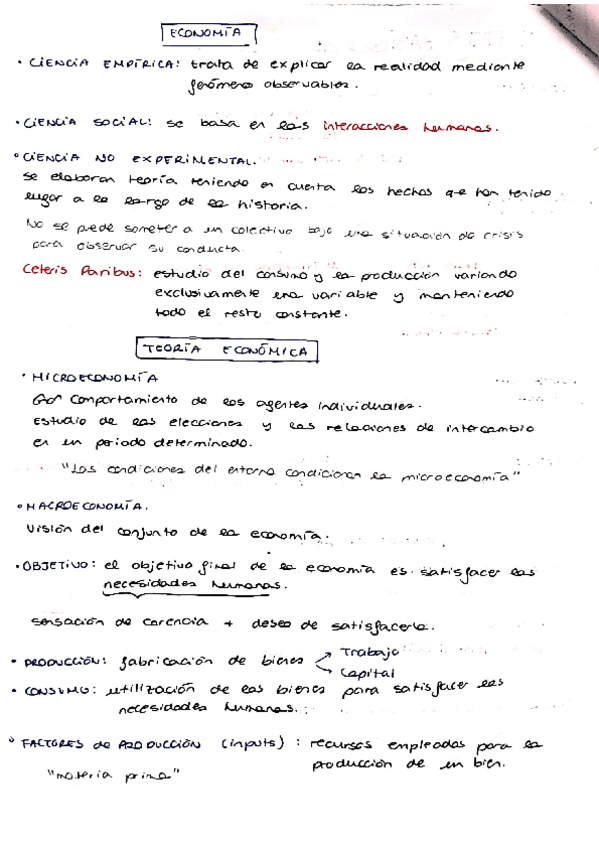 ECONOMÍA
• CIENCIA EMPÍRICA: trata de explicar la realidad mediante
fenómenos observables.
• CIENCIA SOCIAL: se basa en las interacciones humanas.
• CIENCIA NO EXPERIMENTAL.
Se elaboran teoría teniendo en cuenta los hechos que han tenido
lugar a lo largo de la historia.
No se puede someter a un colectivo bajo una situación de crisis
para observar su conducta.
Ceteris Paribus: estudio del consumo y la producción variando
exclusivamente una variable y manteniendo
todo el resto constante.
TEORÍA ECONÓMICA
• MICROECONOMÍA
Comportamiento de los agentes individuales.
Estudio de las elecciones y las relaciones de intercambio
en un periodo determinado.
"Las condiciones del entorno condicionan la microeconomía"
• MACROECONOMÍA.
Visión del conjunto de la economía.
• OBJETIVO: el objetivo final de la economía es satisfacer las
necesidades humanas.
sensación de carencia + deseo de satisfacerla.
• PRODUCCIÓN: fabricación de bienes
Trabajo
Capital
• CONSUMO: utilización de los bienes para satisfacer las
necesidades humanas.
• FACTORES de PRODUCCIÓN (inputs): recursos empleados para la
producción de un bien.
"materia prima"